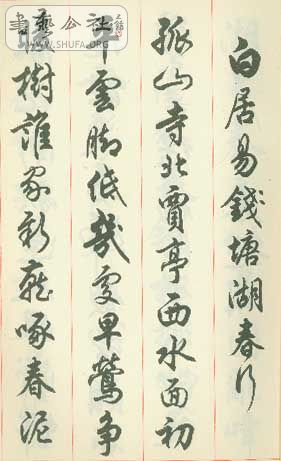 白居易錢塘湖春行
孤山寺北賈亭西水面初
平雲脚低幾處早鶯争
暖樹誰家新燕啄春泥
書藝公社
© WWW.SHUFA.ORG